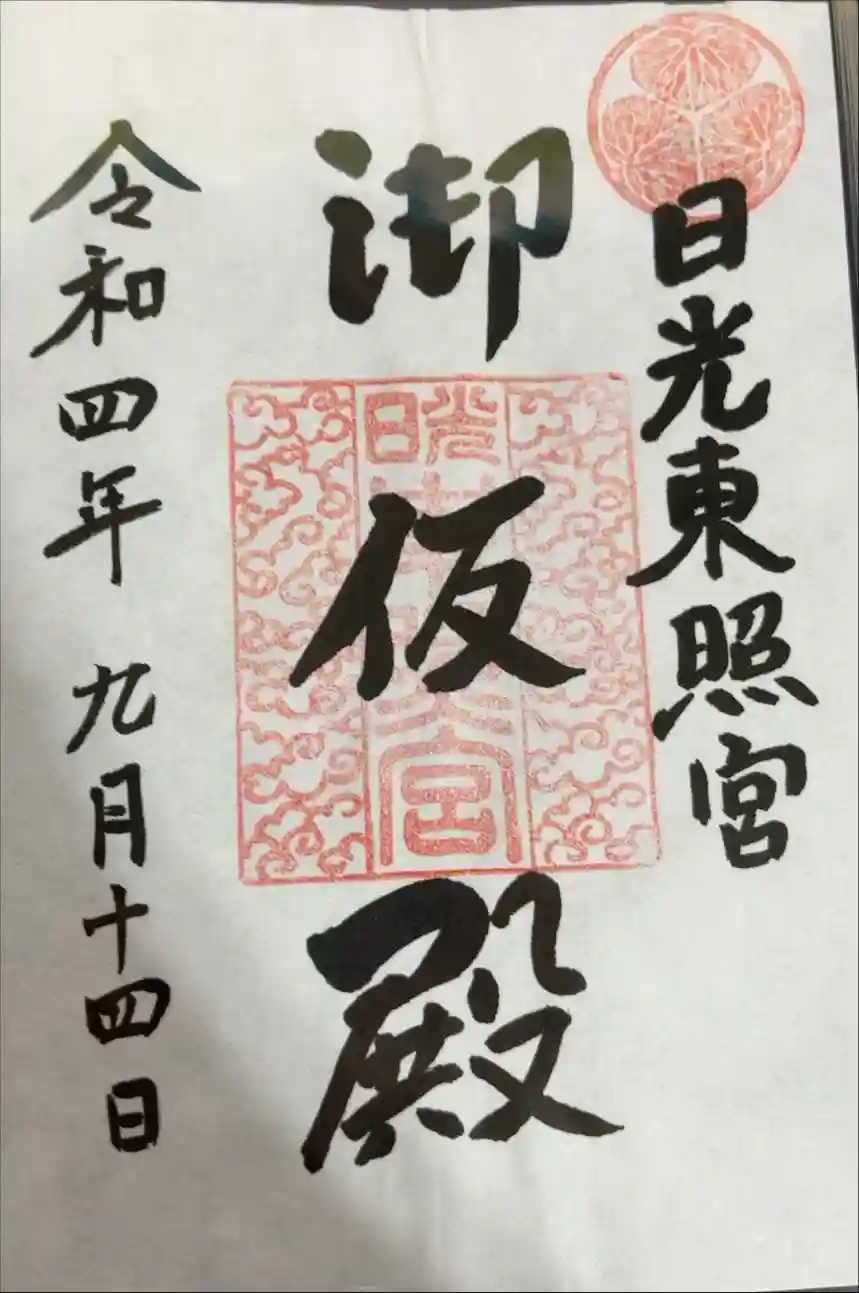 日光東照宮
御仮殿
日光東照宮
令和四年 九月十四日